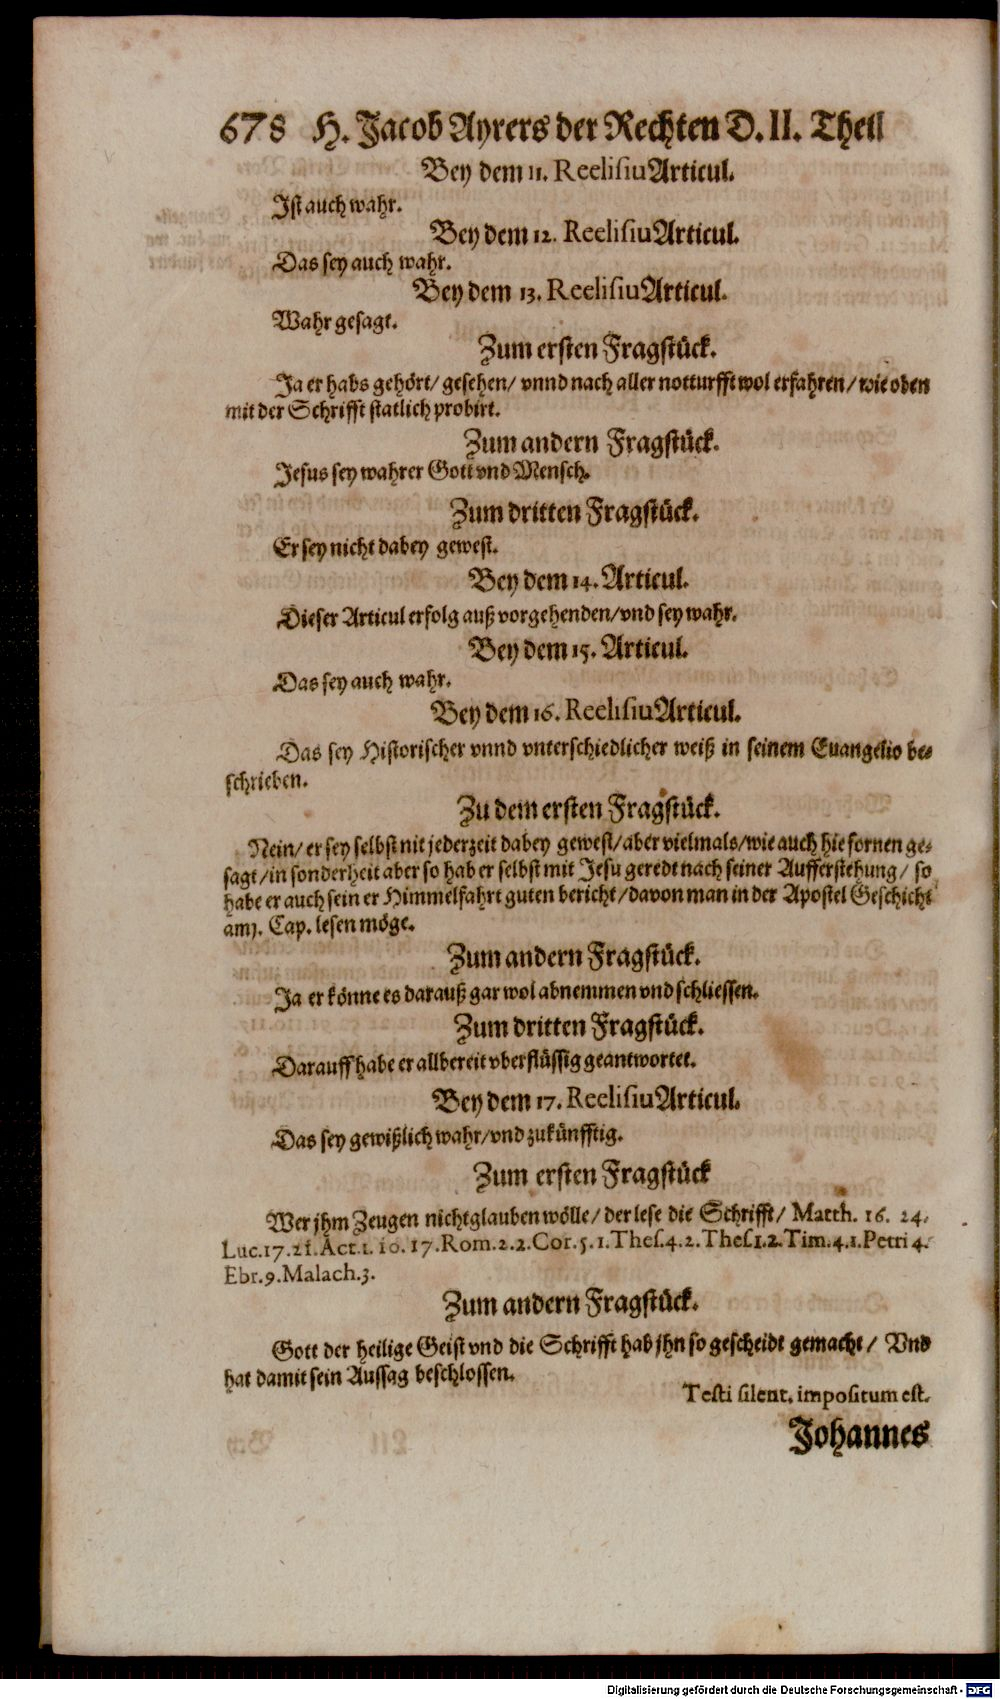 678 H. Jacob Ayrers der Rechten D. II. Theil
Bey dem 11. Reelisiu Articul.
Ist auch wahr.
Bey dem 12. Reelisiu Articul.
Das sey auch wahr.
Bey dem 13. Reelisiu Articul.
Wahr gesagt.
Zum ersten Fragstück.
Ja er habs gehört/ gesehen/ vnnd nach aller notturfft wol erfahren/ wie oben
mit der Schrifft statlich probirt.
Zum andern Fragstück.
Jesus sey wahrer Gott vnd Mensch.
Zum dritten Fragstück.
Er sey nicht dabey gewest.
Bey dem 14. Articul.
Dieser Articul erfolg auß vorgehenden/ vnd sey wahr.
Bey dem 15. Articul.
Das sey auch wahr.
Bey dem 16. Reelisiu Articul.
Das sey Historischer vnnd vnterschiedlicher weiß in seinem Euangelio be-
schrieben.
Zu dem ersten Fragstück.
Nein/ er sey selbst nit jederzeit dabey gewest/ aber vielmals/ wie auch hie fornen ge-
sagt/ in sonderheit aber so hab er selbst mit Jesu geredt nach seiner Aufferstehung/ so
habe er auch sein er Himmelfahrt guten bericht/ davon man in der Apostel Geschicht
am 1. Cap. lesen möge.
Zum andern Fragstück.
Ja er könne es darauß gar wol abnemmen vnd schliessen.
Zum dritten Fragstück.
Darauff habe er allbereit vberflüssig geantwortet.
Bey dem 17. Reelisiu Articul.
Das sey gewißlich wahr/ vnd zukünfftig.
Zum ersten Fragstück
Wer jhm Zeugen nicht glauben wölle/ der lese die Schrifft/ Matth. 16. 24.
Luc. 17. 21. Act. 1. 10. 17. Rom. 2. 2. Cor. 5. 1. Thes. 4. 2. Thes 1. 2. Tim. 4. 1. Petri 4.
Ebr. 9. Malach. 3.
Zum andern Fragstück.
Gott der heilige Geist vnd die Schrifft hab jhn so gescheidt gemacht/ Vnd
hat damit sein Aussag beschlossen.
Testi silent. impositum est.
Johannes
Digitalisierung gefördert durch die Deutsche Forschungsgemeinschaft - DFG